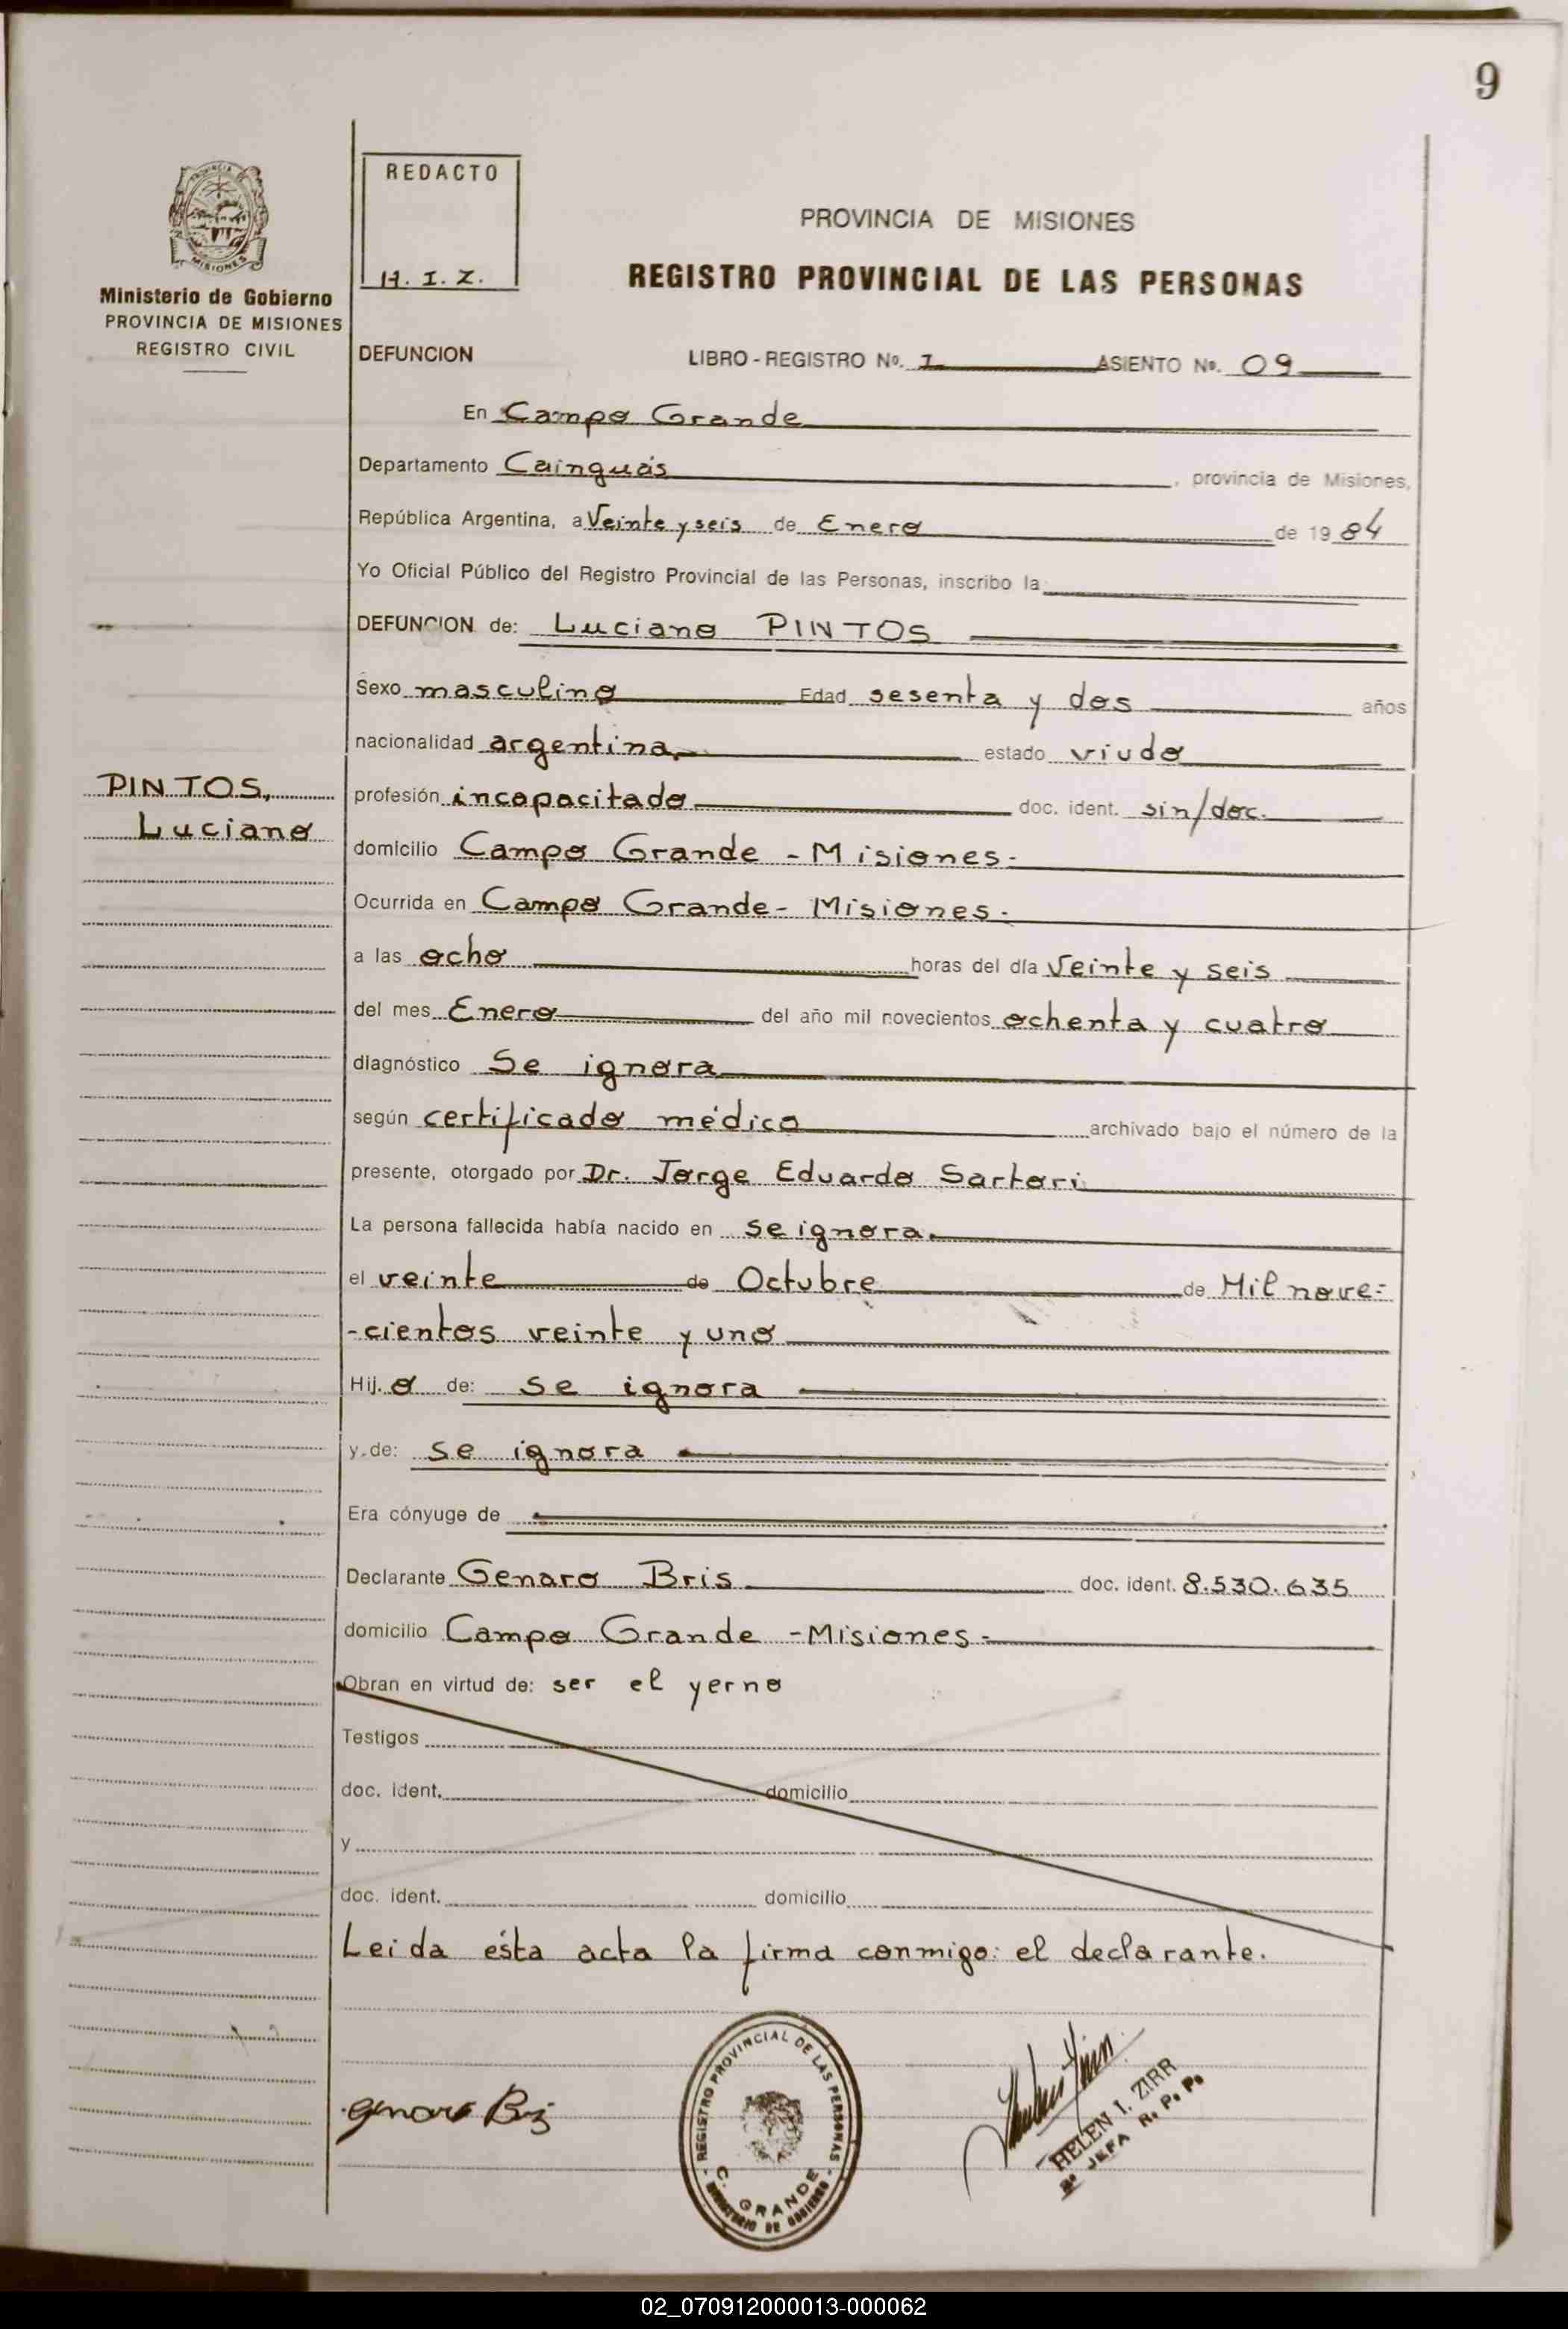 9
REDACTO
H. I. Z.
PROVINCIA DE MISIONES
REGISTRO PROVINCIAL DE LAS PERSONAS
MISIONES
Ministerio de Gobierno
PROVINCIA DE MISIONES
REGISTRO CIVIL
DEFUNCION LIBRO - REGISTRO Nº. 1 ASIENTO Nº. 09
En Campo Grande
Departamento Cainguás, provincia de Misiones,
República Argentina, a Veinte y seis de Enero de 1984
Yo Oficial Público del Registro Provincial de las Personas, inscribo la
DEFUNCION de: Luciano PINTOS
Sexo masculino Edad sesenta y dos años
nacionalidad argentina estado viudo
PINTOS,
Luciano
profesión incapacitado doc. ident. sin/doc.
domicilio Campo Grande - Misiones-
Ocurrida en Campo Grande- Misiones-
a las ocho horas del día Veinte y seis
del mes Enero del año mil novecientos ochenta y cuatro
diagnóstico Se ignora
según certificado médico archivado bajo el número de la
presente, otorgado por Dr. Jorge Eduardo Sartori
La persona fallecida había nacido en se ignora
el veinte de Octubre de Mil nove=
-cientos veinte y uno
Hij. o de: se ignora
y de: se ignora
Era cónyuge de
Declarante Genaro Bris doc. ident. 8.530.635
domicilio Campo Grande -Misiones-
Obran en virtud de: ser el yerno
Testigos
doc. ident. domicilio
y
doc. ident. domicilio
Leida ésta acta la firma conmigo: el declarante.
REGISTRO PROVINCIAL DE LAS PERSONAS
C. GRANDE
MINISTERIO DE GOBIERNO
Genaro Bris
HELEN I. ZIRR
2ª JEFA R. P. P.
02_070912000013-000062